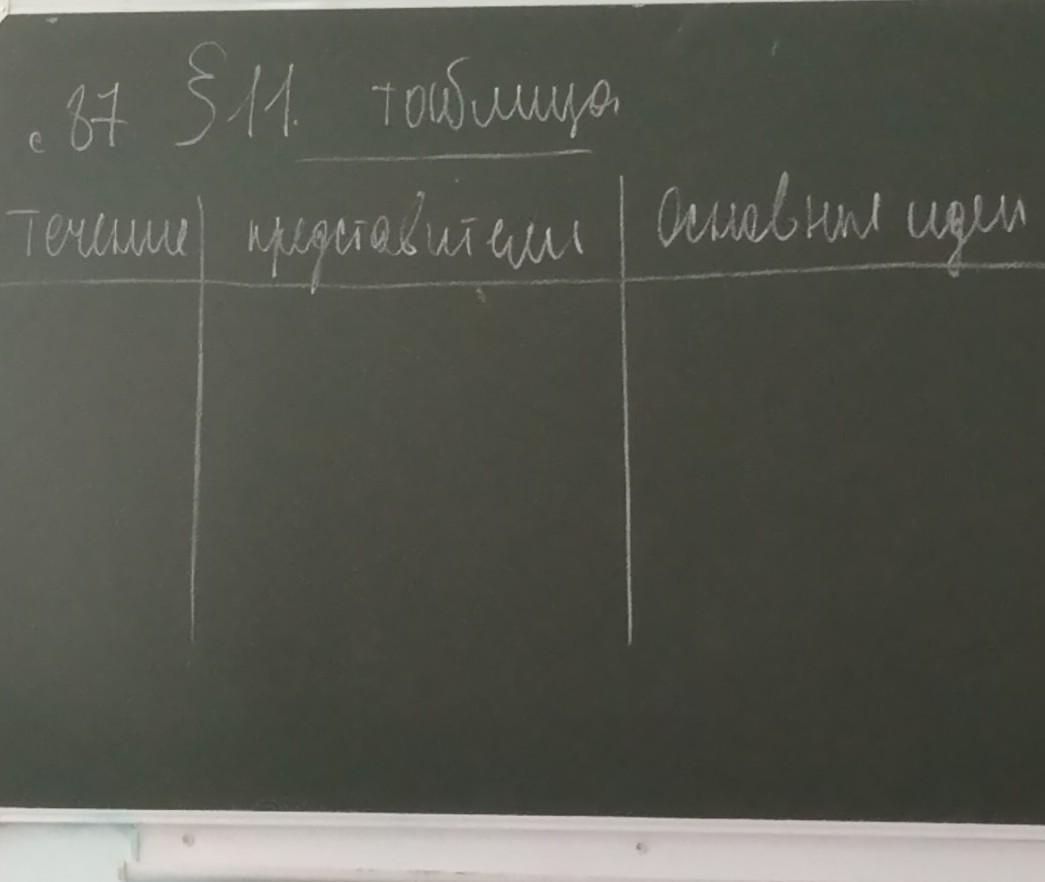 с 87 §11. таблица
течение представители Основные идеи